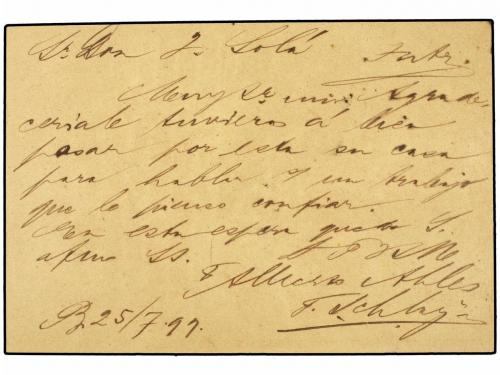 Sr Don J. Solá
Muy Sr mio: Agrade-
ceriale tuvieras á bien
pasar por esta su casa
para hablar un trabajo
que le pienso confiar.
En esta espera queda S.
afmo SS.
Alberto Ahles
B. 25/7.99.